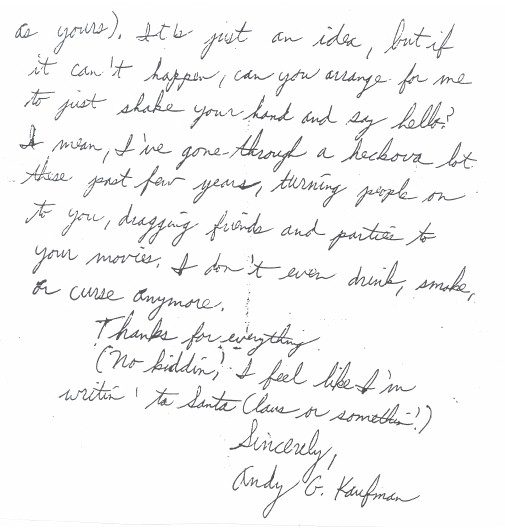 as yours). It's just an idea, but if
it can't happen, can you arrange for me
to just shake your hand and say hello?
I mean, I've gone through a heckova lot
these past few years, turning people on
to you, dragging friends and parties to
your movies. I don't even drink, smoke,
or curse anymore.
Thanks for everything
(No kiddin'! I feel like I'm
writin' to Santa Claus or somethin'!)
Sincerely,
Andy G. Kaufman